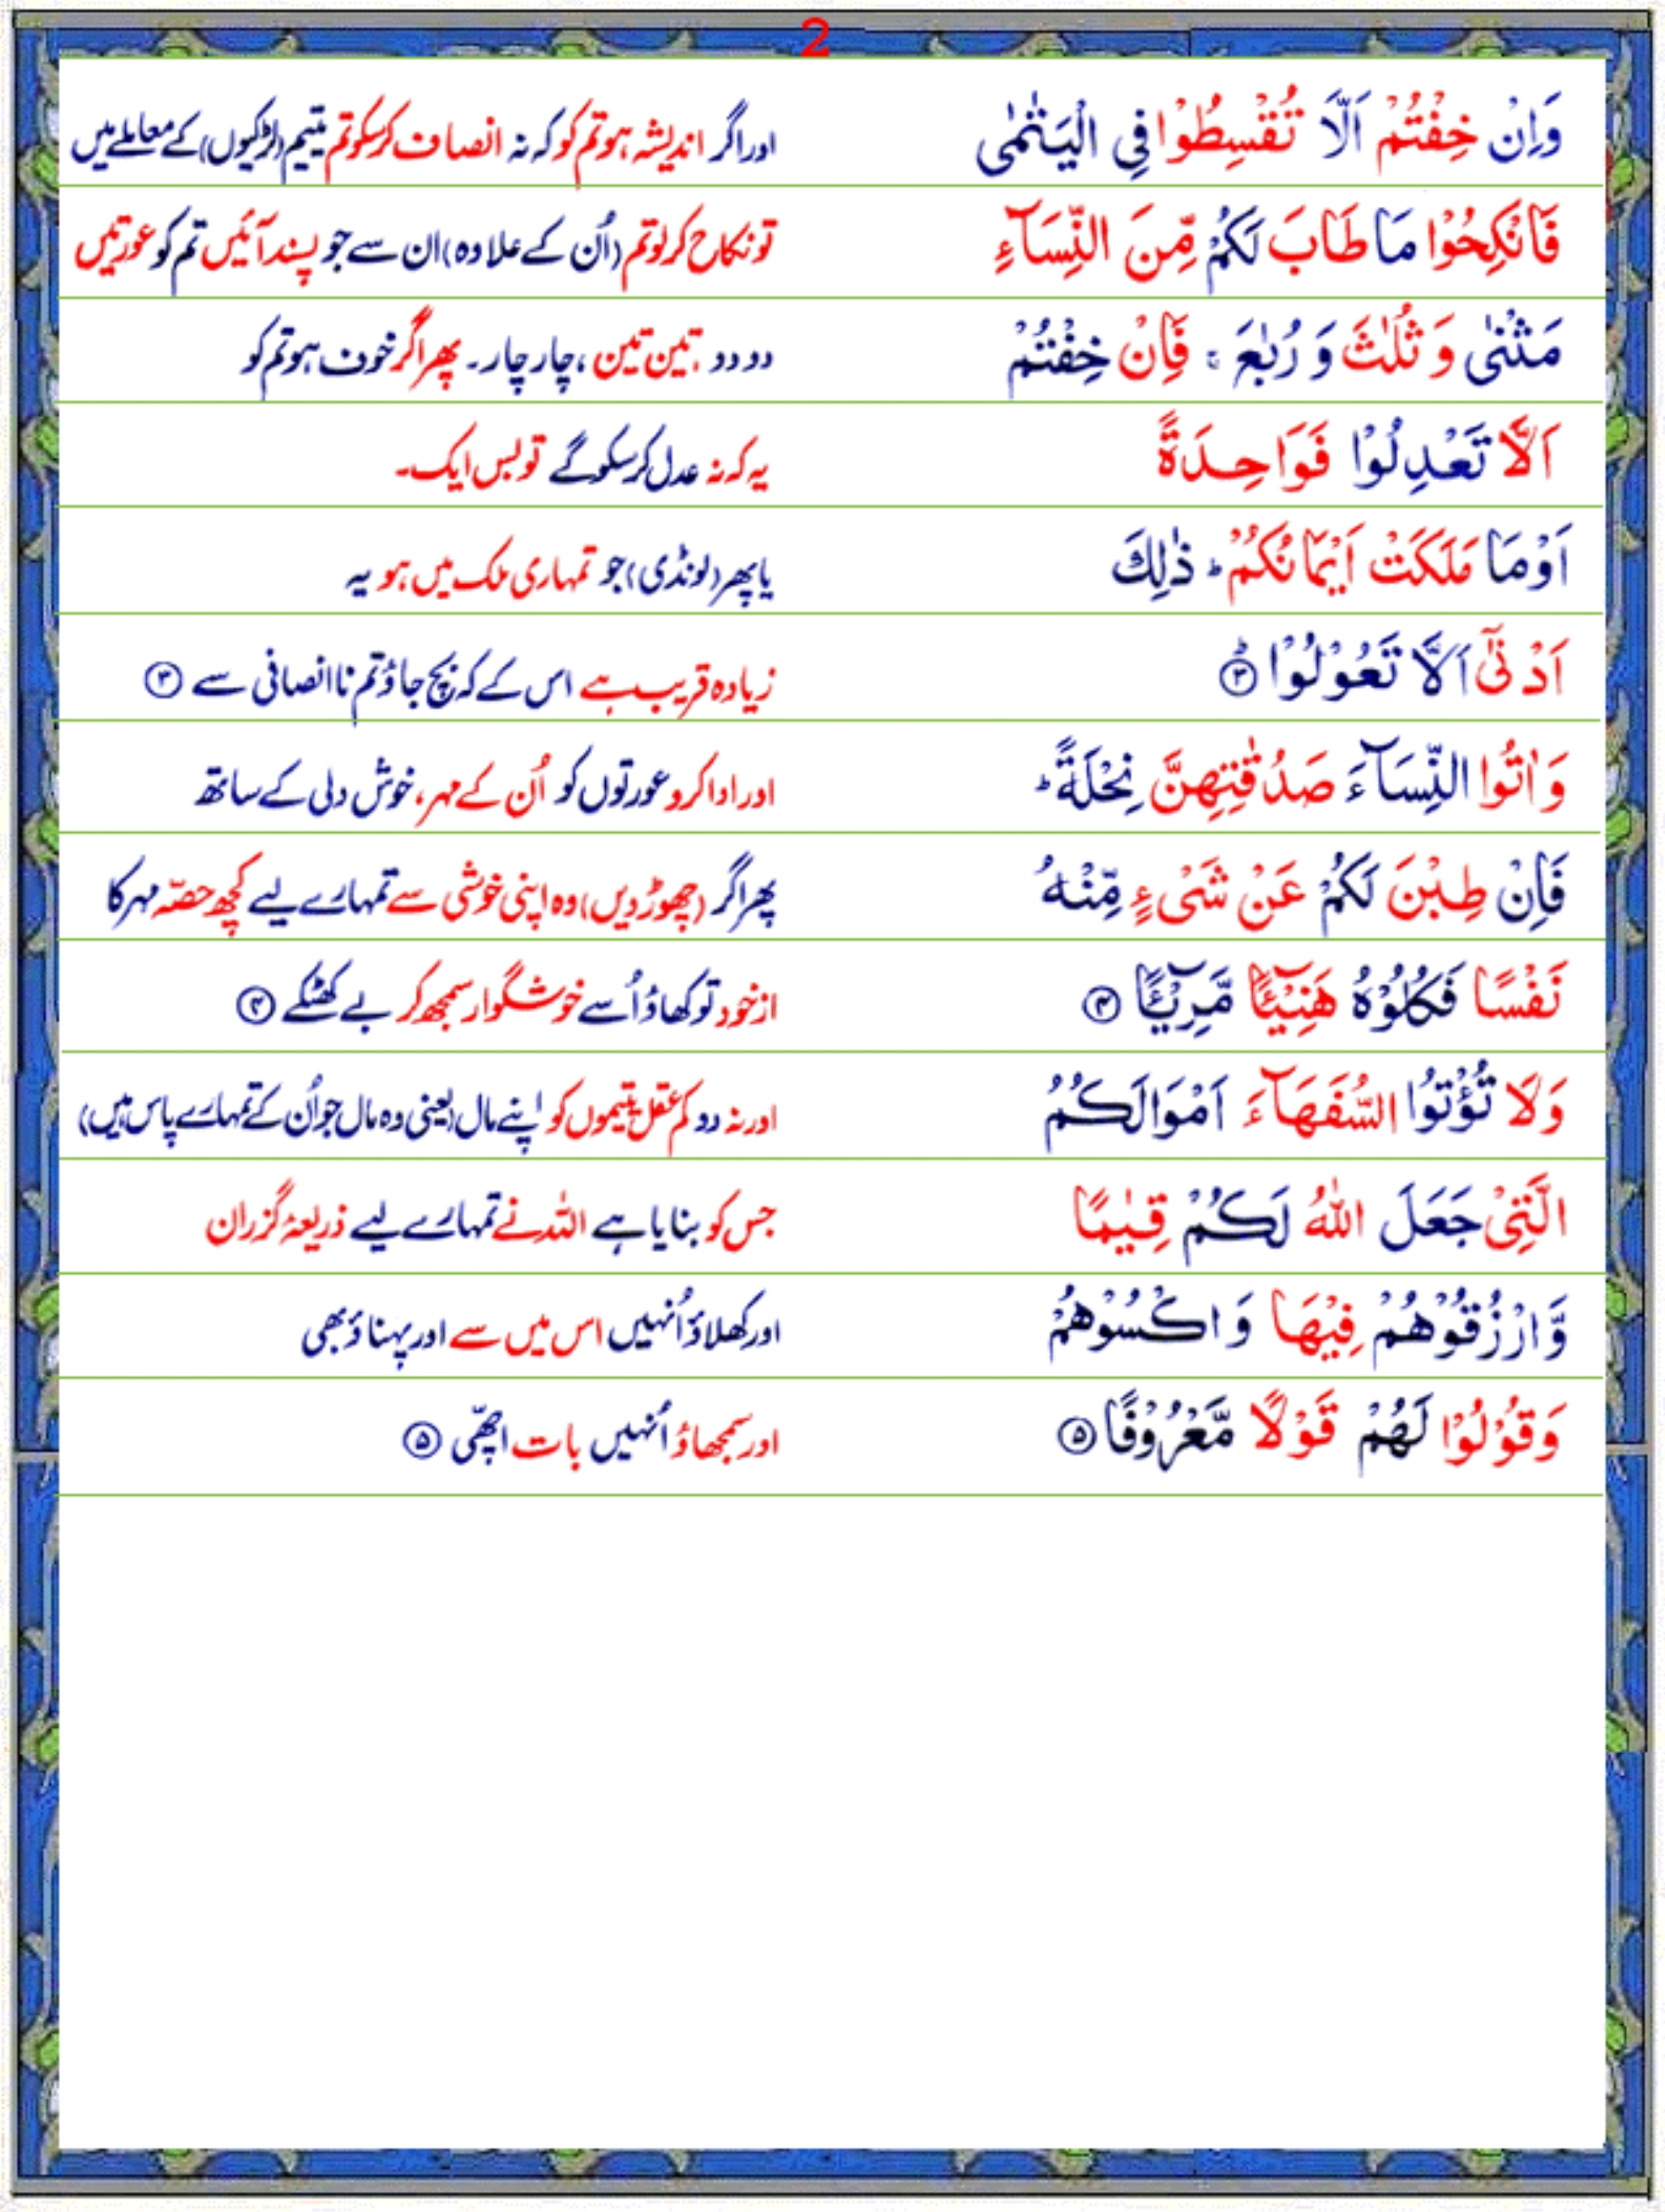 2
وَاِنْ خِفْتُمْ اَلَّا تُقْسِطُوْا فِي الْيَتٰمٰى
اور اگر اندیشہ ہو تم کو کہ نہ انصاف کر سکو تم یتیم (لڑکیوں) کے معاملے میں
فَانْكِحُوْا مَا طَابَ لَكُمْ مِّنَ النِّسَآءِ
تو نکاح کر لو تم (اُن کے علاوہ) ان سے جو پسند آئیں تم کو عورتیں
مَثْنٰى وَ ثُلٰثَ وَ رُبٰعَ ۚ فَاِنْ خِفْتُمْ
دو دو، تین تین، چار چار۔ پھر اگر خوف ہو تم کو
اَلَّا تَعْدِلُوْا فَوَاحِدَةً
یہ کہ نہ عدل کر سکو گے تو بس ایک۔
اَوْ مَا مَلَكَتْ اَيْمَانُكُمْ ؕ ذٰلِكَ
یا پھر (لونڈی) جو تمہاری ملک میں ہو یہ
اَدْنٰٓى اَلَّا تَعُوْلُوْا ؕ۝۳
زیادہ قریب ہے اس کے کہ بچ جاؤ تم نا انصافی سے ۝۳
وَ اٰتُوا النِّسَآءَ صَدُقٰتِهِنَّ نِحْلَةً ؕ
اور ادا کرو عورتوں کو اُن کے مہر، خوش دلی کے ساتھ
فَاِنْ طِبْنَ لَكُمْ عَنْ شَيْءٍ مِّنْهُ
پھر اگر (چھوڑ دیں) وہ اپنی خوشی سے تمہارے لیے کچھ حصّہ مہر کا
نَفْسًا فَكُلُوْهُ هَنِيْٓئًا مَّرِيْٓئًا ۝۴
از خود تو کھاؤ اُسے خوشگوار سمجھ کر بے کھٹکے ۝۴
وَلَا تُؤْتُوا السُّفَهَآءَ اَمْوَالَكُمُ
اور نہ دو کم عقل یتیموں کو اپنے مال (یعنی وہ مال جو اُن کے تمہارے پاس ہیں)
الَّتِيْ جَعَلَ اللّٰهُ لَكُمْ قِيٰمًا
جس کو بنایا ہے اللہ نے تمہارے لیے ذریعۂ گزران
وَّارْزُقُوْهُمْ فِيْهَا وَاكْسُوْهُمْ
اور کھلاؤ اُنہیں اس میں سے اور پہناؤ بھی
وَقُوْلُوْا لَهُمْ قَوْلًا مَّعْرُوْفًا ۝۵
اور سمجھاؤ اُنہیں بات اچھّی ۝۵